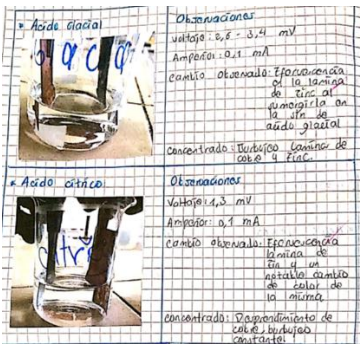 * Acido Glacial
Observaciones
Voltaje: 2,5 - 3,4 mV
Amperios: 0,1 mA
cambio observado: Efervescencia
of la lamina
de zinc al
sumergirla en
la stn de
acido glacial
concentrado: Burbujeo lamina de
cobre y zinc.
* Acido citrico
Observaciones
Voltaje: 1,3 mV
Amperios: 0,1 mA
cambio observado: Efervescencia
lamina de
zin y un
notable cambio
de color de
la misma
concentrado: Desprendimiento de
cobre, burbujeo
constante